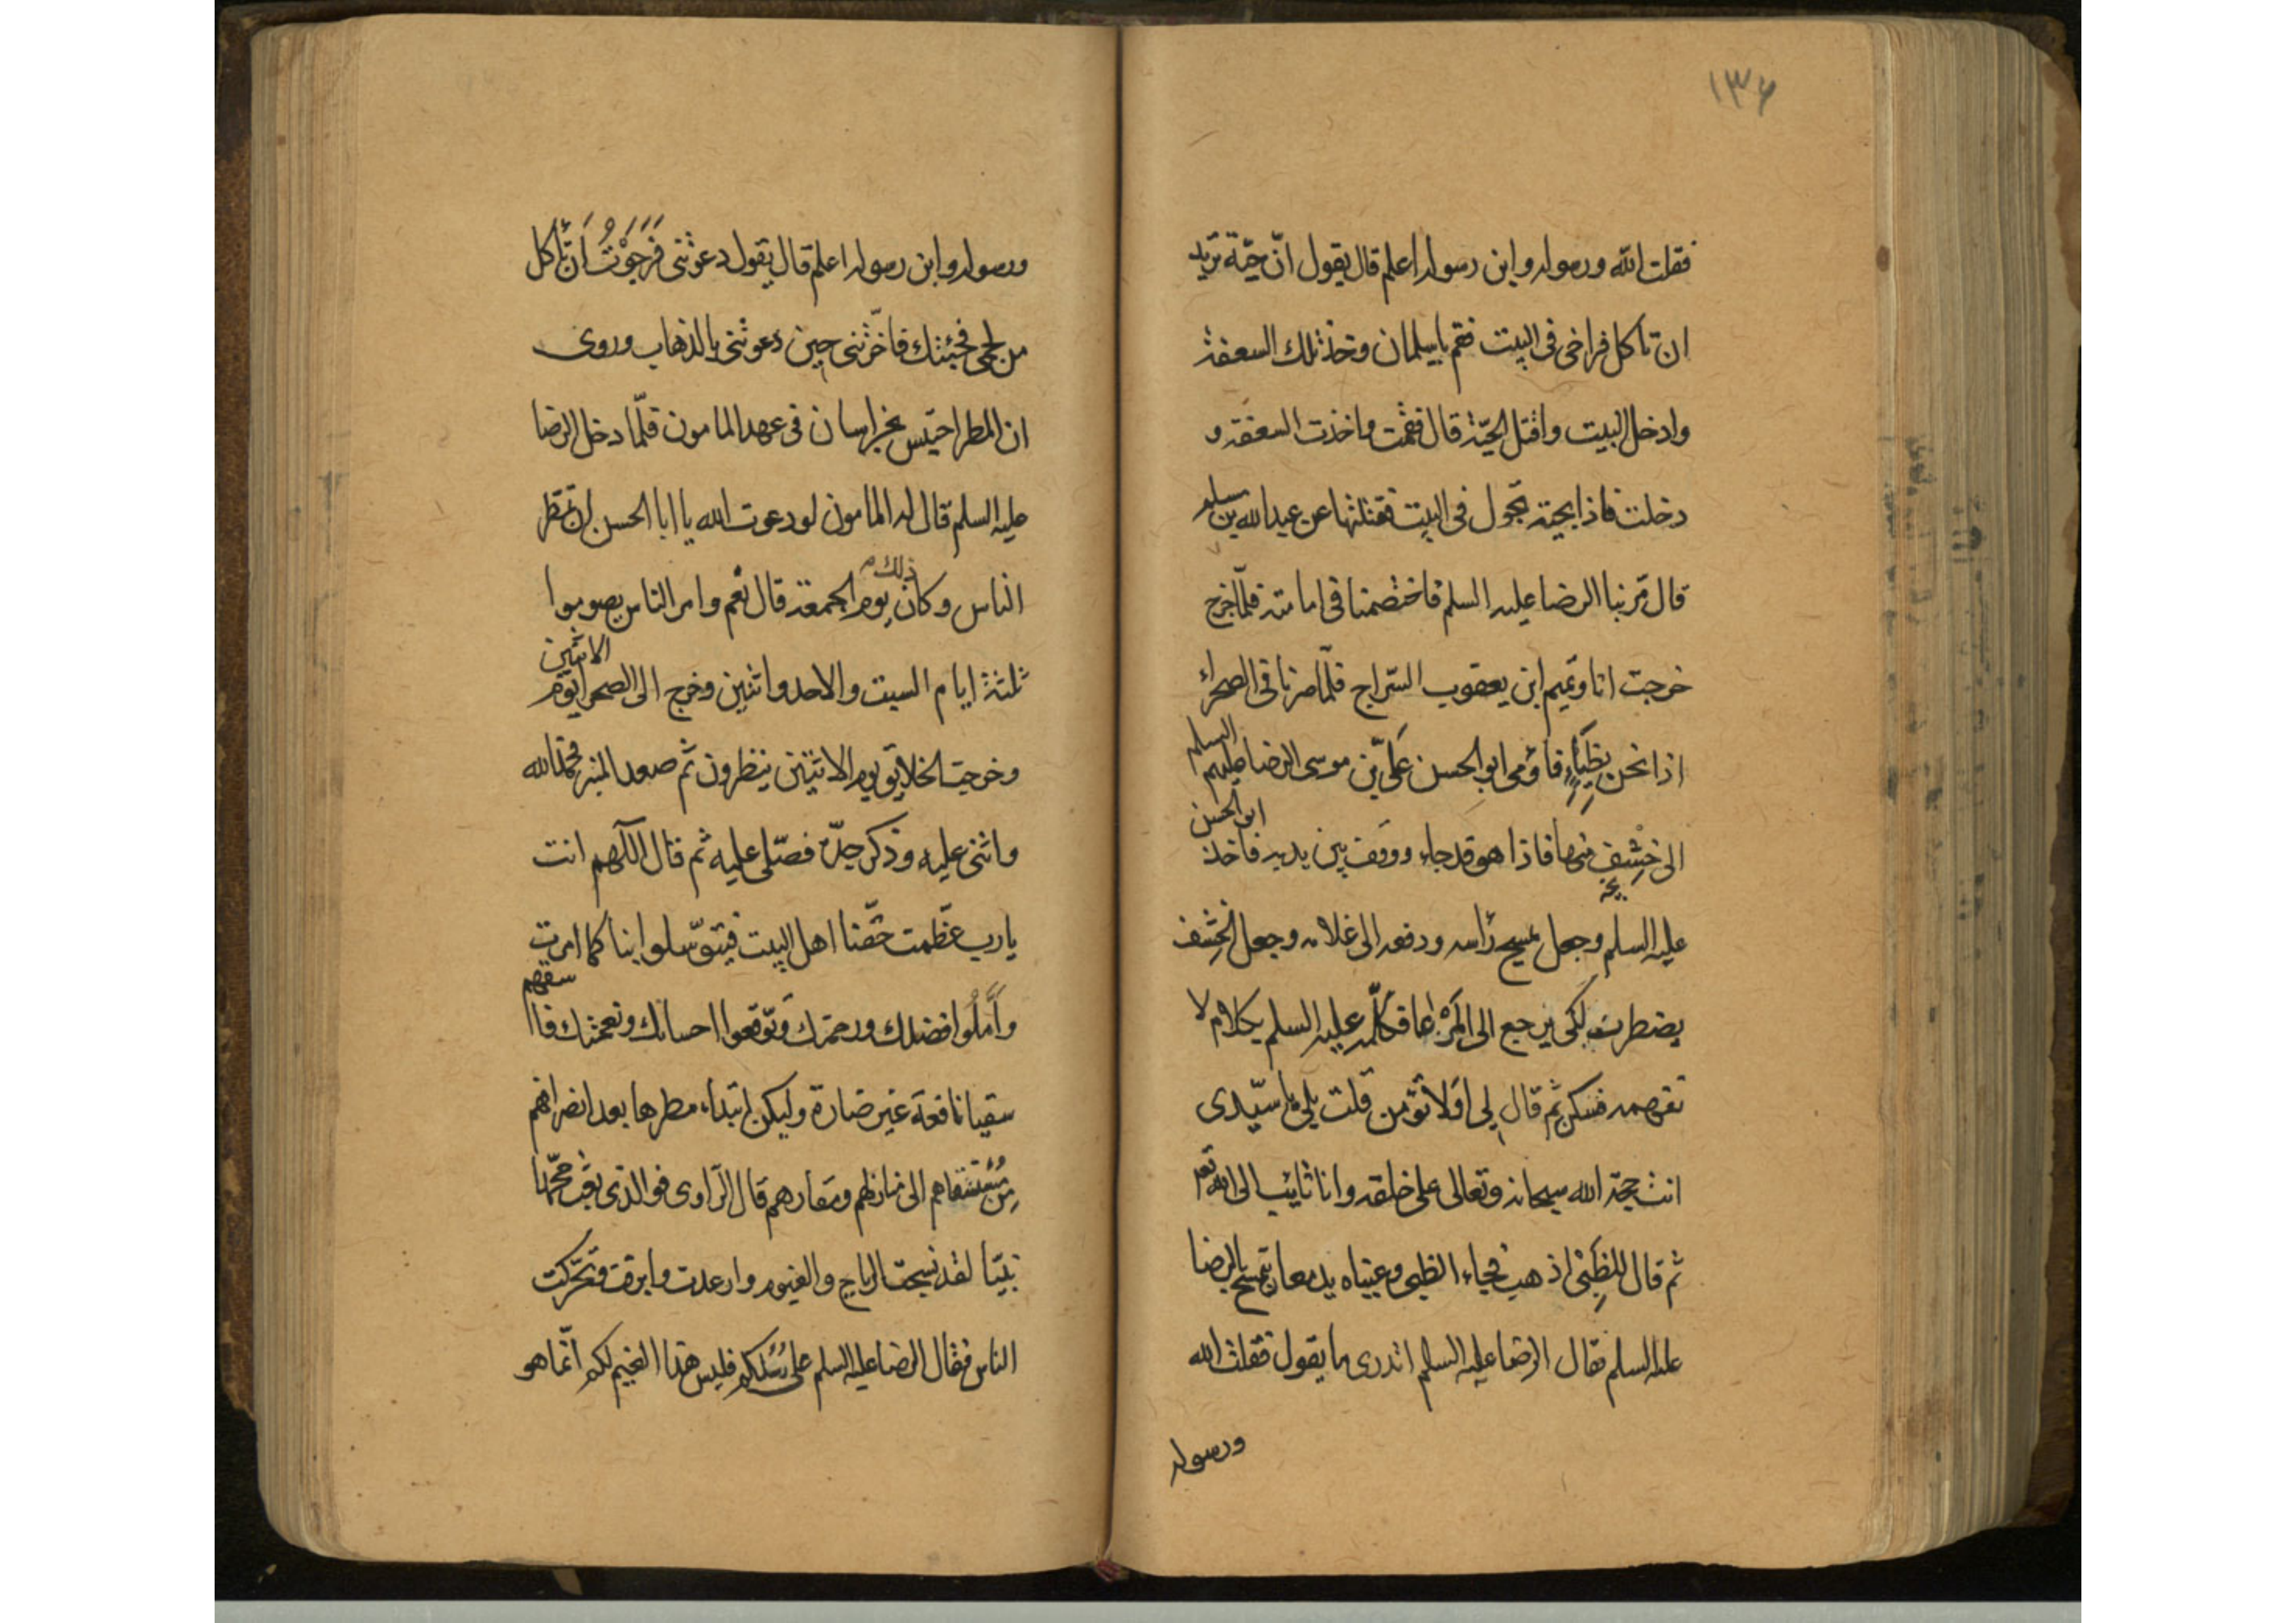 ١٣٦
فقلت الله ورسوله وابن رسوله اعلم قال يقول انّ حيّة تريد
ان تاكل فراخى فى البيت فقم ياسليمان وخذ تلك السعفة
وادخل البيت واقتل الحيّة قال فقمت واخذت السعفة و
دخلت فاذا بحية تجول فى البيت فقتلتها عن عبدالله بن
قال مّر بنا الرضا عليه السلم فاختصمنا فى امامته فلمّا خرج
خرجت انا وتميم ابن يعقوب السّراج فلمّا صرنا فى الصحراء
اذا نحن بِظِبَاءٍ فاؤمى ابو الحسن عَلىّ بن موسى الرضا عليهم السلم
الى خِشْفٍ منها فاذا هو قد جاء ووقف بين يديه فاخذ ابو الحسن
عليه السلم وجعل يمسح رأسه ودفعه الى غلامه وجعل الخِشف
يضطرب لكى يرجع الى المَرْعا فكلّمه عليه السلم بكلام لا
نفهمه فسكن ثم قال لى اَوَلا تؤمن قلت بلى يا سيّدى
انت حجة الله سبحانه وتعالى على خلقه وانا تائب الى الله تعه
ثم قال للظَبْىِ اذهب فجاء الظبى وعيناه يدمعان تمسح بالرضا
عليه السلم فقال الرضا عليه السلم اتدرى ما يقول فقلت الله
ورسوله
ورسوله وابن رسوله اعلم قال يقول دعوتنى فَرَجَوْتُ اَن تأكل
من لحمى فجئتك فاخّرتنى حين دعوتنى بالذهاب وروى
ان المطر احتبس بخراسان فى عهد المامون فلمّا دخل الرضا
عليه السلم قال له المامون لو دعوت الله يا ابا الحسن ان تمطر
الناس وكان ذلك يوم الجمعة قال نعم وامر الناس بصوموا
ثلثة ايام السبت والاحد واثنين وخرج الى الصحرا يوم الاثنين
وخرجت الخلايق يوم الاثنين ينظرون ثم صعد المنبر فحمد الله
واثنى عليه وذكر جدّه فصّلى عليه ثم قال اللّهم انت
يارب عظّمت حقّنا اهل البيت فيتوّسلوا بنا كما امرت
واَمَّلُوا فضلك ورحمتك وتَوّقعوا احسانك ونعمتك فاسقهم
سقيا نافعة غير ضارة وليكن ابتداء مطرها بعد انصرافهم
مِن مُسْتَسْقاهم الى منازلهم ومقارهم قال الرّاوى فوالذى بعث محّمدا
نبيّا لقد نسجت الرياح والغيوم وارعدت وابرقت وتحّركت
الناس فقال الرضا عليه السلم على رُسُلكم فليس هذا الغيم لكم انّما هو